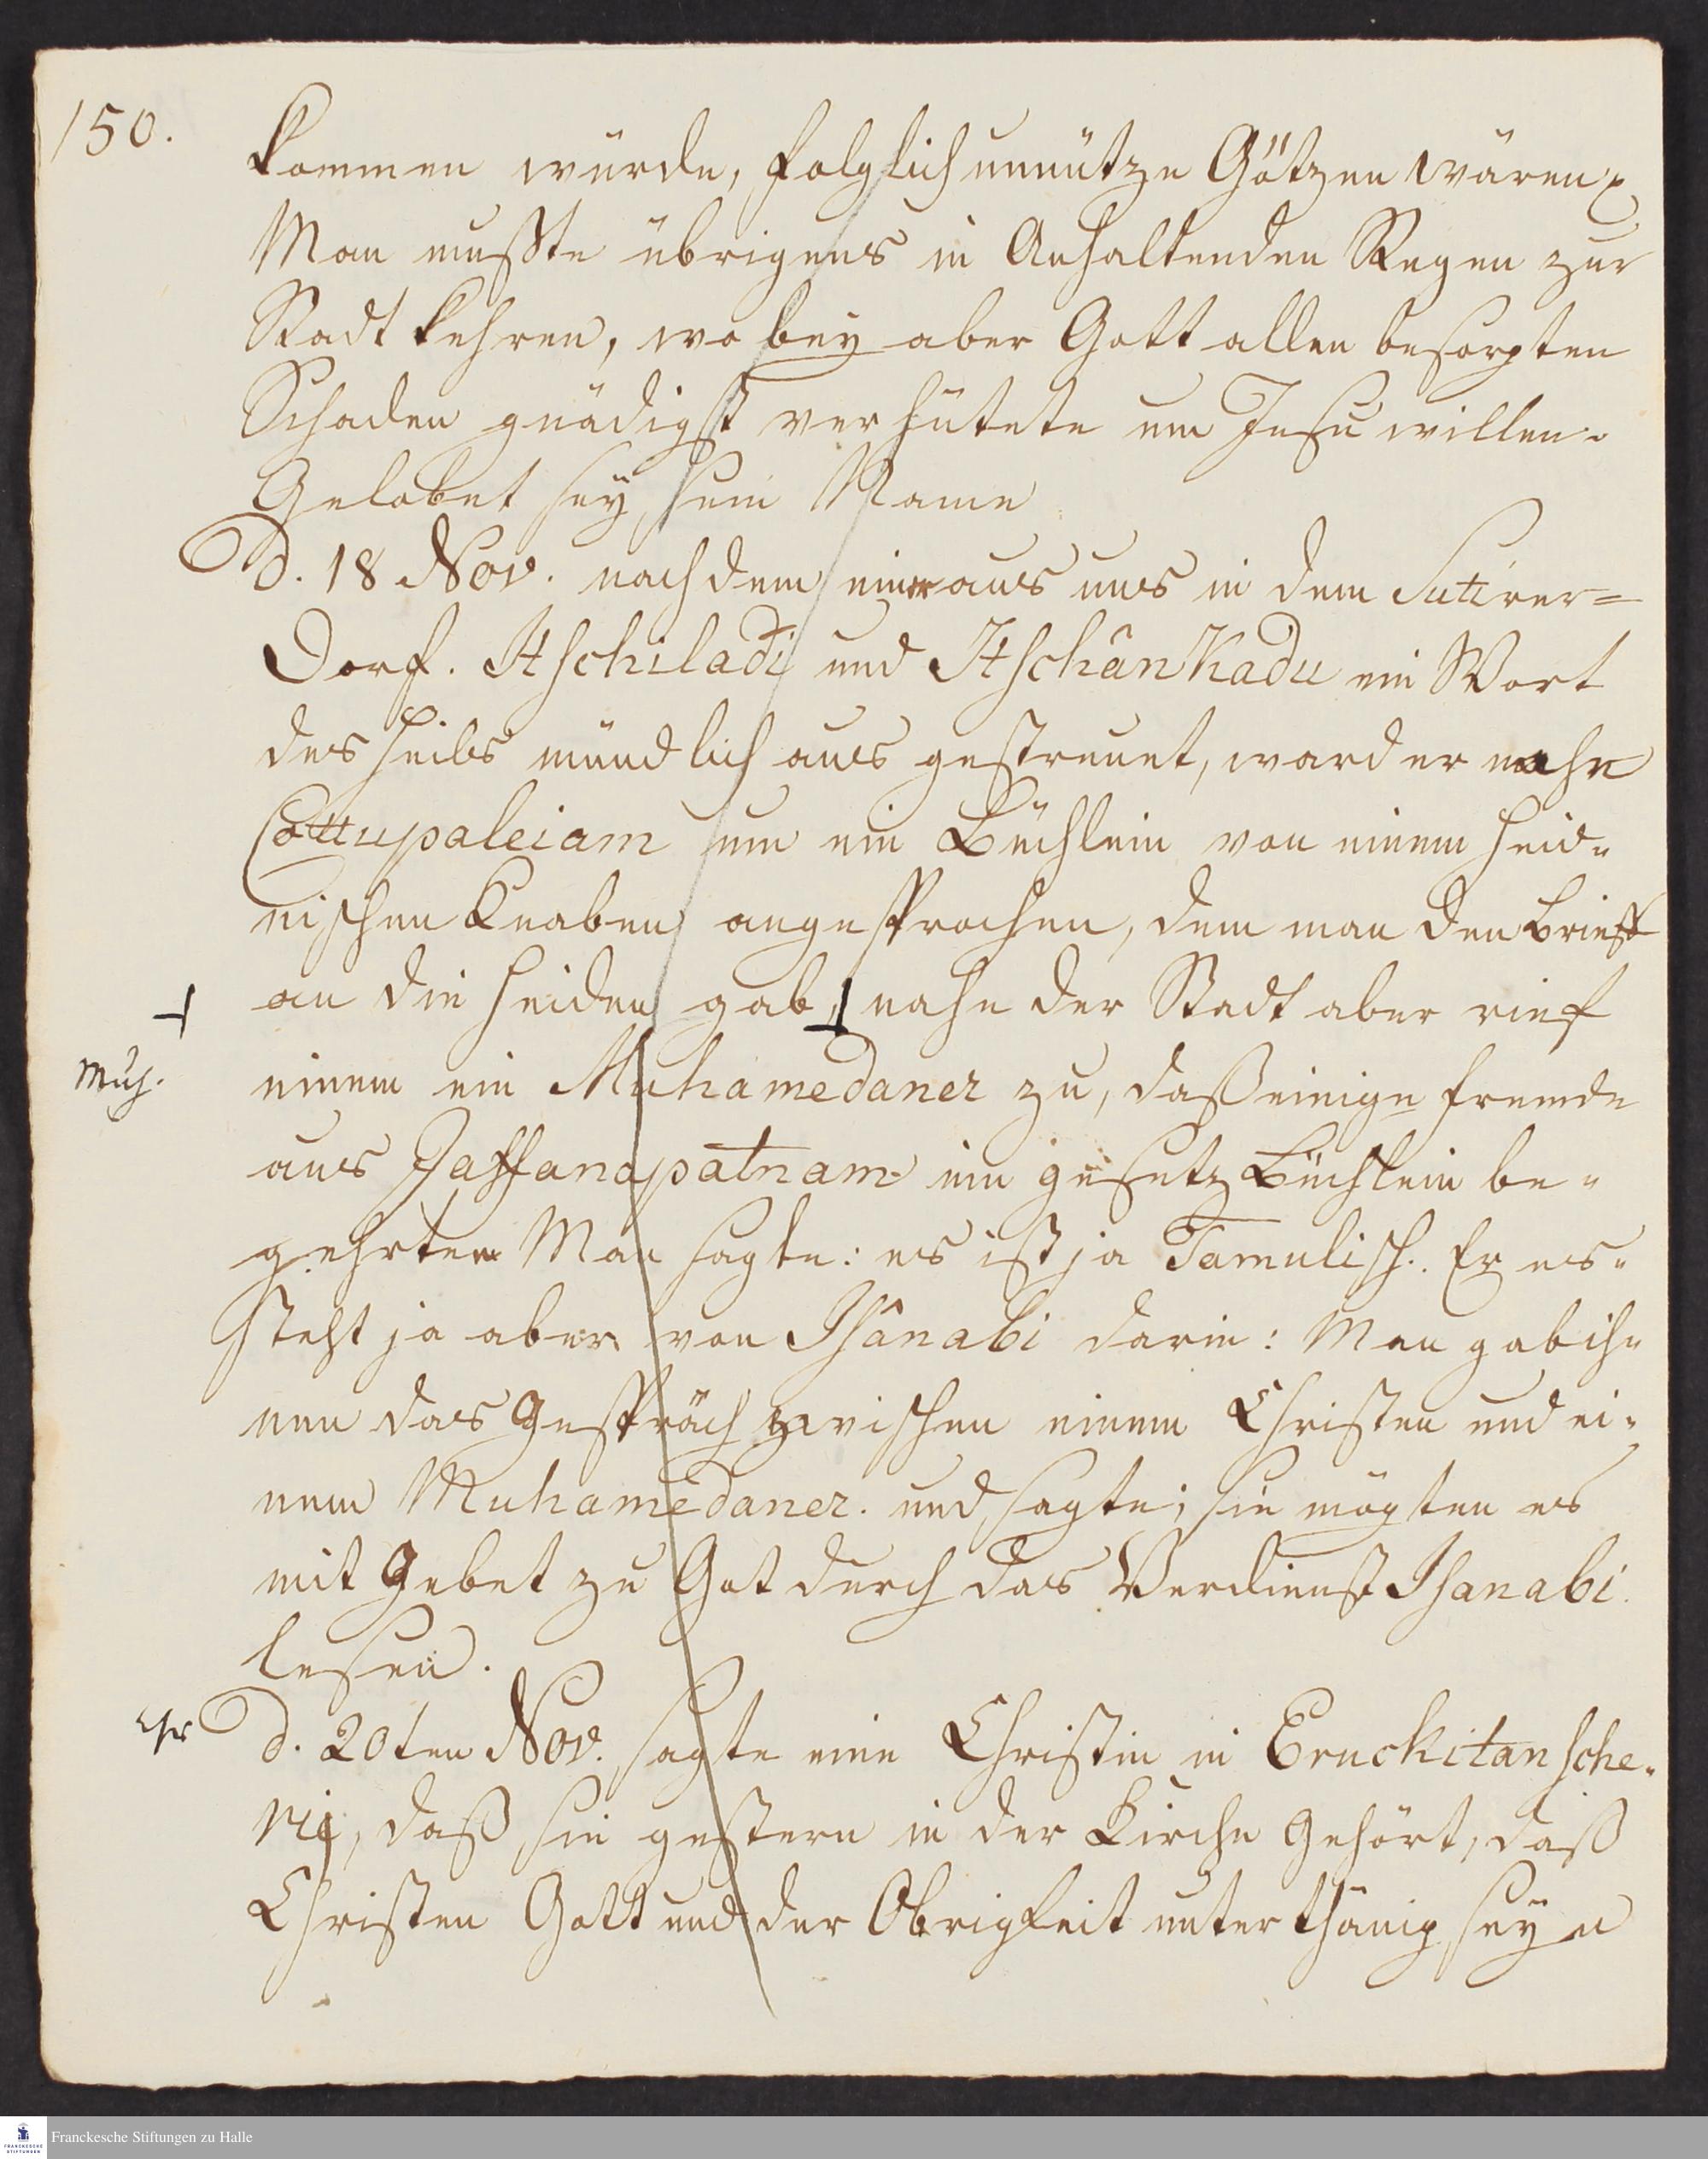 150.
kommen würde, folglich unnütze Götzen wären
Man mußte übrigens in Anhaltenden Regen zur
Stadt kehren, wo bey aber Gott allen besorgten
Schaden gnädigst verhütete um Jesu willen.
Gelobet sey sein Name
D. 18 Nov. nach dem einer aus uns in dem Sutirer=
Dorf. Itschiladi und Itschânkadu ein Wort
des Heils mündlich aus gestreuet, ward er nahe
Cottupaleiam um ein Büchlein von einem heid-
nischen Knaben angesprochen, dem man den Brieff
an die Heiden gab, nahe der Stadt aber rief
Muh. einem ein Muhamedaner zu, daß einige fremde
aus Jaffanapatnam ein gesetz Büchlein be-
gehrten Man sagte: es ist ja Tamulisch. Er es-
steht ja aber von Isânabi darin: Man gab ih-
nen das Gespräch zwischen einem Christen und ei-
nem Muhamedaner. und sagte; sie mögten es
mit Gebet zu Got durch das Verdienst Isanabi.
lesen.
Chr d. 20ten Nov. sagte eine Christin in Eruckitansche-
rij, daß sie gestern in der Kirche Gehört, daß
Christen Gott und der Obrigkeit unterthänig seyn
Franckesche Stiftungen zu Halle